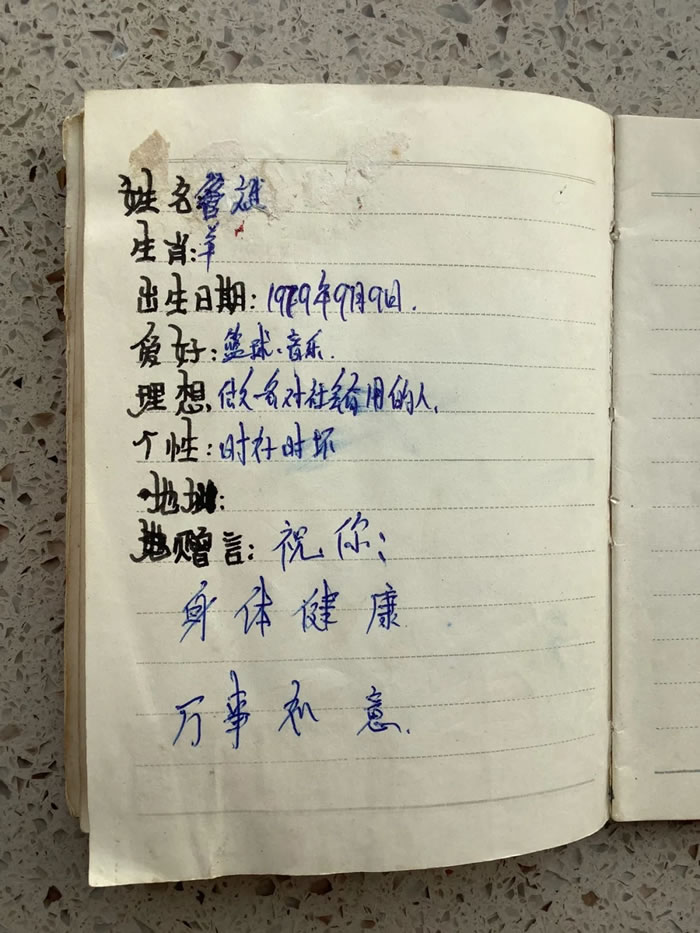 姓名管
生肖:羊
出生日期:1979年9月9日.
爱好:篮球、音乐.
理想.做一名对社会有用的人.
个性:时好时坏
地址:
赠言:祝你:
身体健康
万事如意.